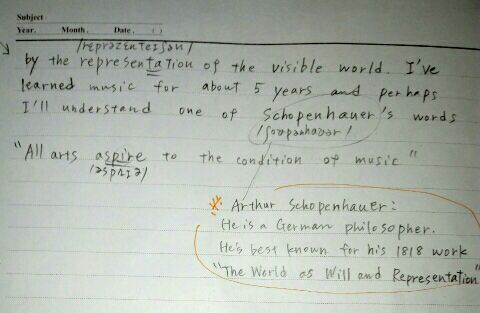 Subject :
Year. Month. Date. ( )
/reprəzenteɪʃən/
by the representation of the visible world. I've
learned music for about 5 years and perhaps
I'll understand one of Schopenhauer's words
/ʃoʊpənhaʊər/
"All arts aspire to the condition of music"
/əspaɪə/
※ Arthur Schopenhauer:
He is a German philosopher.
He's best known for his 1818 work
"The World as Will and Representation"